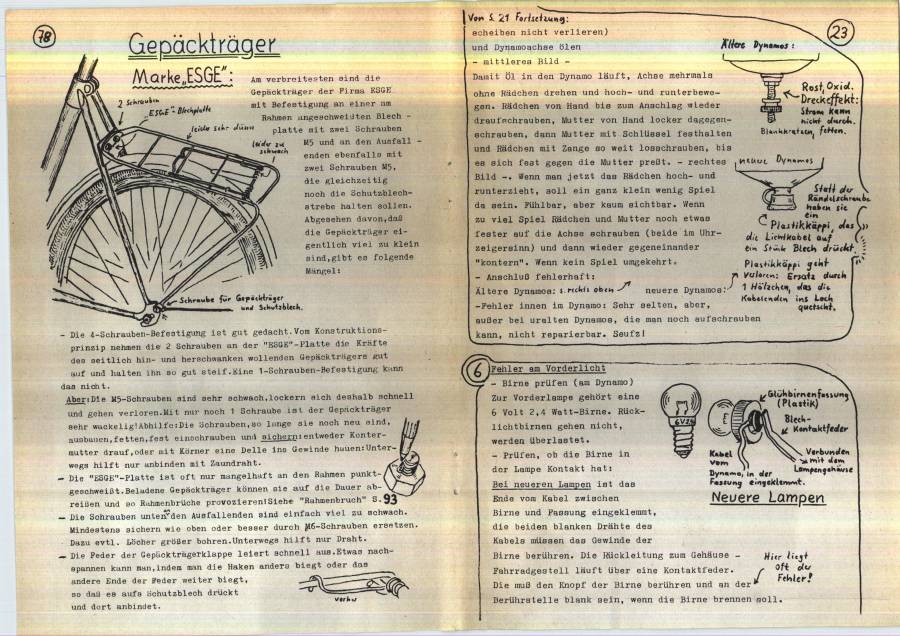 78
Gepäckträger
Marke „ESGE":
2 Schrauben
„ESGE"-Blechplatte
leider sehr dünn
leider zu
schwach
Schraube für Gepäckträger
und Schutzblech.
Am verbreitesten sind die
Gepäckträger der Firma ESGE
mit Befestigung an einer am
Rahmen angeschweißten Blech -
platte mit zwei Schrauben
M5 und an den Ausfall -
enden ebenfalls mit
zwei Schrauben M5,
die gleichzeitig
noch die Schutzblech-
strebe halten sollen.
Abgesehen davon,daß
die Gepäckträger ei-
gentlich viel zu klein
sind,gibt es folgende
Mängel:
- Die 4-Schrauben-Befestigung ist gut gedacht.Vom Konstruktions-
prinzip nehmen die 2 Schrauben an der "ESGE"-Platte die Kräfte
des seitlich hin- und herschwanken wollenden Gepäckträgers gut
auf und halten ihn so gut steif.Eine 1-Schrauben-Befestigung kann
das nicht.
Aber:Die M5-Schrauben sind sehr schwach,lockern sich deshalb schnell
und gehen verloren.Mit nur noch 1 Schraube ist der Gepäckträger
sehr wackelig!Abhilfe:Die Schrauben,so lange sie noch neu sind,
ausbauen,fetten,fest einschrauben und sichern:entweder Konter-
mutter drauf,oder mit Körner eine Delle ins Gewinde hauen:Unter-
wegs hilft nur anbinden mit Zaundraht.
- Die "ESGE"-Platte ist oft nur mangelhaft an den Rahmen punkt-
geschweißt.Beladene Gepäckträger können sie auf die Dauer ab-
reißen und so Rahmenbrüche provozieren!Siehe "Rahmenbruch" S.93
- Die Schrauben unten an den Ausfallenden sind einfach viel zu schwach.
Mindestens sichern wie oben oder besser durch M6-Schrauben ersetzen.
Dazu evtl. Löcher größer bohren.Unterwegs hilft nur Draht.
- Die Feder der Gepäckträgerklappe leiert schnell aus.Etwas nach-
spannen kann man,indem man die Haken anders biegt oder das
andere Ende der Feder weiter biegt,
so daß es aufs Schutzblech drückt
und dort anbindet.
vorher
23
Von S. 21 Fortsetzung:
scheiben nicht verlieren)
und Dynamoachse ölen
- mittleres Bild -
Damit Öl in den Dynamo läuft, Achse mehrmals
ohne Rädchen drehen und hoch- und runterbewe-
gen. Rädchen von Hand bis zum Anschlag wieder
draufschrauben, Mutter von Hand locker dagegen-
schrauben, dann Mutter mit Schlüssel festhalten
und Rädchen mit Zange so weit losschrauben, bis
es sich fest gegen die Mutter preßt. - rechtes
Bild -. Wenn man jetzt das Rädchen hoch- und
runterzieht, soll ein ganz klein wenig Spiel
da sein. Fühlbar, aber kaum sichtbar. Wenn
zu viel Spiel Rädchen und Mutter noch etwas
fester auf die Achse schrauben (beide im Uhr-
zeigersinn) und dann wieder gegeneinander
"kontern". Wenn kein Spiel umgekehrt.
- Anschluß fehlerhaft:
Ältere Dynamos: s. rechts oben neuere Dynamos:
-Fehler innen im Dynamo: Sehr selten, aber,
außer bei uralten Dynamos, die man noch aufschrauben
kann, nicht reparierbar. Seufz!
Ältere Dynamos:
Rost, Oxid.
Dreckeffekt:
Strom kann
nicht durch.
Blankkratzen, fetten.
neuere Dynamos
Statt der
Rändelschraube
haben sie
ein
Plastikkäppi, das
die Lichtkabel auf
ein Stück Blech drückt.
Plastikkäppi geht
verloren: Ersatz durch
1 Hölzchen, das die
Kabelenden ins Loch
quetscht.
6 Fehler am Vorderlicht
- Birne prüfen (am Dynamo)
Zur Vorderlampe gehört eine
6 Volt 2,4 Watt-Birne. Rück-
lichtbirnen gehen nicht,
werden überlastet.
- Prüfen, ob die Birne in
der Lampe Kontakt hat:
Bei neueren Lampen ist das
Ende vom Kabel zwischen
Birne und Fassung eingeklemmt,
die beiden blanken Drähte des
Kabels müssen das Gewinde der
Birne berühren. Die Rückleitung zum Gehäuse -
Fahrradgestell läuft über eine Kontaktfeder.
Die muß den Knopf der Birne berühren und an der
Berührstelle blank sein, wenn die Birne brennen soll.
Glühbirnenfassung
(Plastik)
Blech-
Kontaktfeder
Verbunden
mit dem
Lampengehäuse
Kabel
vom
Dynamo, in der
Fassung eingeklemmt.
Neuere Lampen
Hier liegt
oft der
Fehler!